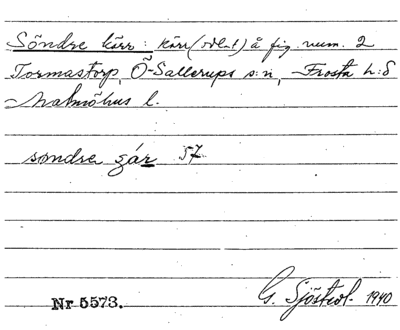 Söndre kärr: kärr (odlat) å fig. num. 2
Tormastorp, Ö-Sallerups s:n, Frosta h:d
Malmöhus l.
søndre gár 57
Nr 5573. G. Sjöstedt 1940